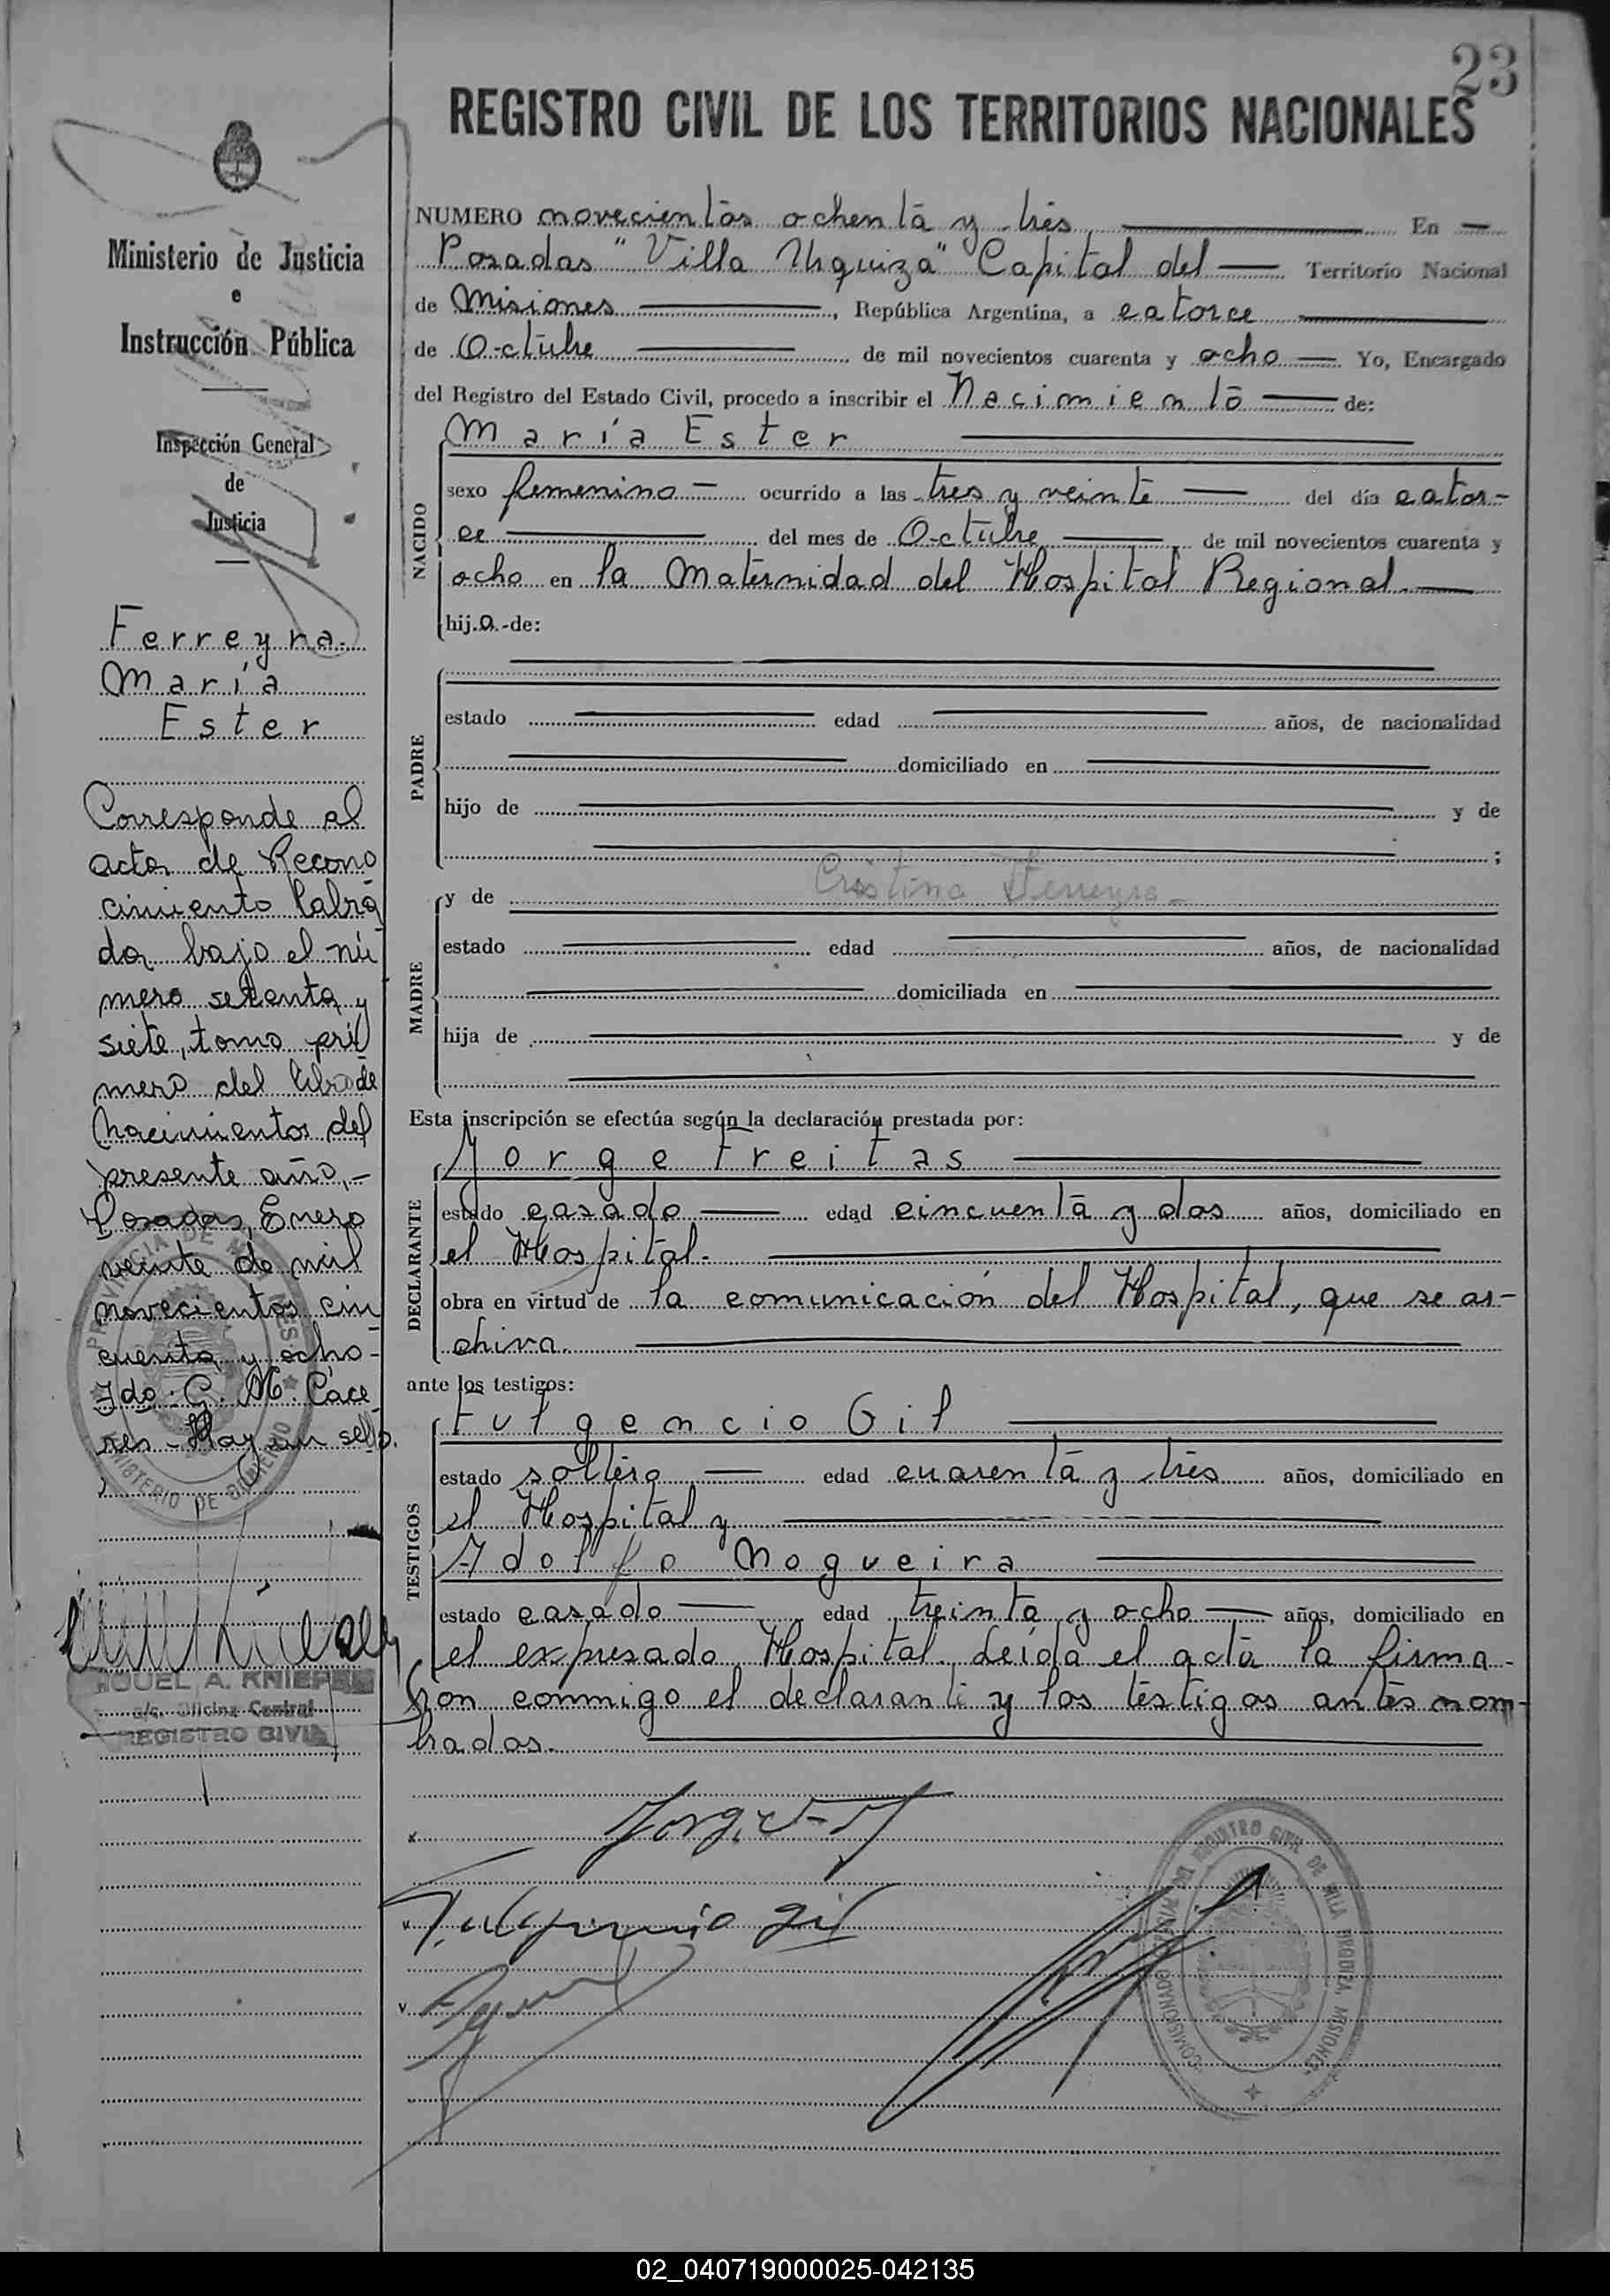 23
REGISTRO CIVIL DE LOS TERRITORIOS NACIONALES
Ministerio de Justicia
e
Instrucción Pública
Inspección General
de
Justicia
Ferreyra
María
Ester
Corresponde al
acta de Recono
cimiento labra
da bajo el nú
mero setenta y
siete, tomo pri
mero del libro de
Nacimientos del
presente año,-
Posadas, Enero
veinte de mil
novecientos cin
cuenta y ocho-
Fdo: G. M. Cáce
res - Hay un sello.
PROVINCIA DE MISIONES
MINISTERIO DE GOBIERNO
MIGUEL A. KNIEPER
a/c. Oficina Central
REGISTRO CIVIL
NUMERO novecientos ochenta y tres En
Posadas "Villa Urquiza" Capital del Territorio Nacional
de Misiones, República Argentina, a catorce
de Octubre de mil novecientos cuarenta y ocho Yo, Encargado
del Registro del Estado Civil, procedo a inscribir el Nacimiento de:
NACIDO
María Ester
sexo femenino - ocurrido a las tres y veinte del día cator-
ce del mes de Octubre de mil novecientos cuarenta y
ocho en la Maternidad del Hospital Regional.
hija-de:
PADRE
estado edad años, de nacionalidad
domiciliado en
hijo de y de
;
MADRE
y de Cristina Ferreyra-
estado edad años, de nacionalidad
domiciliada en
hija de y de
Esta inscripción se efectúa según la declaración prestada por:
DECLARANTE
Jorge Freitas
estado casado edad cincuenta y dos años, domiciliado en
el Hospital.
obra en virtud de la comunicación del Hospital, que se ar-
chiva.
ante los testigos:
TESTIGOS
Fulgencio Gil
estado soltero edad cuarenta y tres años, domiciliado en
el Hospital y
Adolfo Nogueira
estado casado edad treinta y ocho años, domiciliado en
el expresado Hospital. Leída el acta la firma-
ron conmigo el declarante y los testigos antes nom-
brados.
Fulgencio Gil
COMISIONADO ESPECIAL DEL REGISTRO CIVIL DE VILLA URQUIZA, MISIONES
02_040719000025-042135